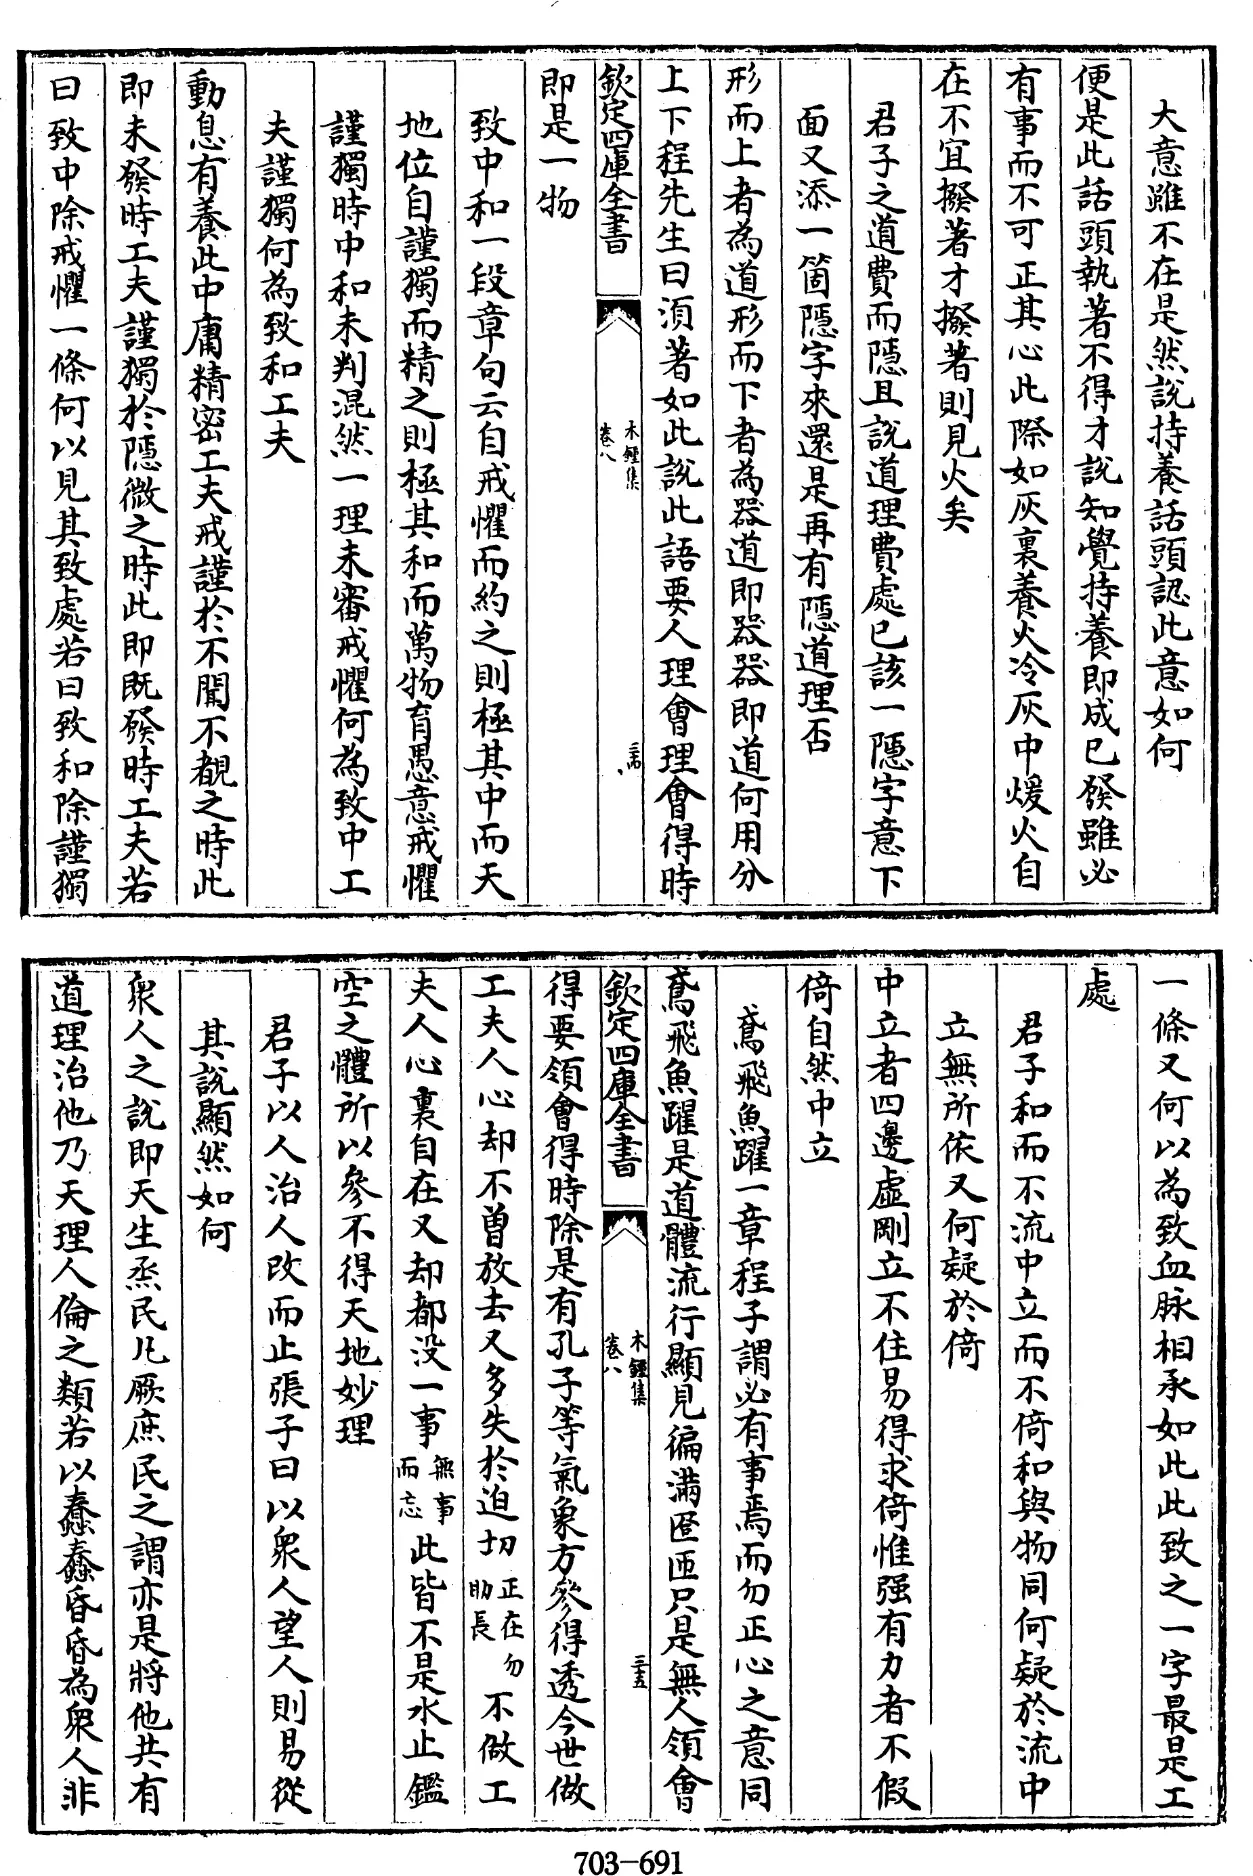 大意雖不在是然說持養話頭認此意如何
便是此話頭執著不得才說知覺持養即成已發雖必
有事而不可正其心此際如灰裏養火冷灰中煖火自
在不宜撥著才撥著則見火矣
君子之道費而隱且說道理費處已該一隱字意下
面又添一箇隱字來還是再有隱道理否
形而上者為道形而下者為器道即器器即道何用分
上下程先生曰須著如此說此語要人理會理會得時
欽定四庫全書
木鍾集
卷八
三十四
即是一物
致中和一段章句云自戒懼而約之則極其中而天
地位自謹獨而精之則極其和而萬物育愚意戒懼
謹獨時中和未判混然一理未審戒懼何為致中工
夫謹獨何為致和工夫
動息有養此中庸精密工夫戒謹於不聞不覩之時此
即未發時工夫謹獨於隱微之時此即既發時工夫若
曰致中除戒懼一條何以見其致處若曰致和除謹獨
一條又何以為致血脉相承如此此致之一字最是工
處
君子和而不流中立而不倚和與物同何疑於流中
立無所依又何疑於倚
中立者四邊虛剛立不住易得求倚惟强有力者不假
倚自然中立
鳶飛魚躍一章程子謂必有事焉而勿正心之意同
鳶飛魚躍是道體流行顯見徧滿匝匝只是無人領會
欽定四庫全書
木鍾集
卷八
三十五
得要領會得時除是有孔子等氣象方參得透今世做
工夫人心却不曾放去又多失於迫切正在勿助長不做工
夫人心裏自在又却都没一事無事而忘此皆不是水止鑑
空之體所以參不得天地妙理
君子以人治人改而止張子曰以衆人望人則易從
其說顯然如何
衆人之說即天生烝民凡厥庶民之謂亦是將他共有
道理治他乃天理人倫之類若以蠢蠢昏昏為衆人非
703-691